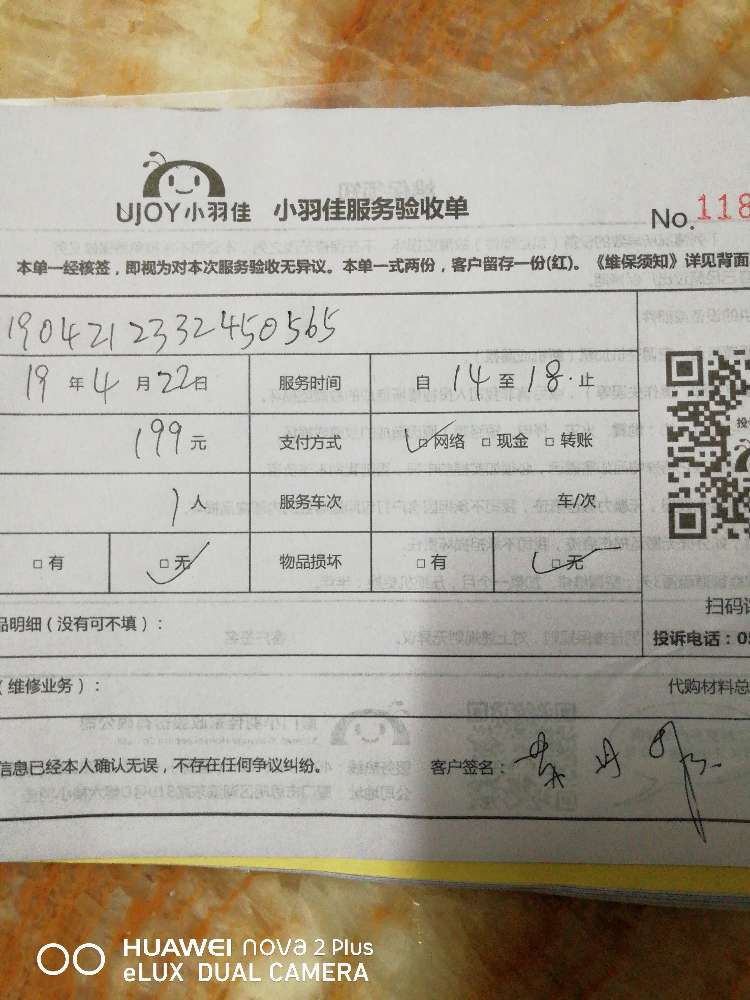 UJOY小羽佳 小羽佳服务验收单 No.118
本单一经核签，即视为对本次服务验收无异议。本单一式两份，客户留存一份(红)。《维保须知》详见背面
1904212332450565
19 年 4 月 22 日 服务时间 自 14 至 18 止
199 元 支付方式 □网络 □现金 □转账
1 人 服务车次 车/次
□有 □无 物品损坏 □有 □无
扫码
品明细（没有可不填）：
投诉电话：05
（维修业务）： 代购材料总
信息已经本人确认无误，不存在任何争议纠纷。 客户签名：
HUAWEI nova 2 Plus
eLUX DUAL CAMERA